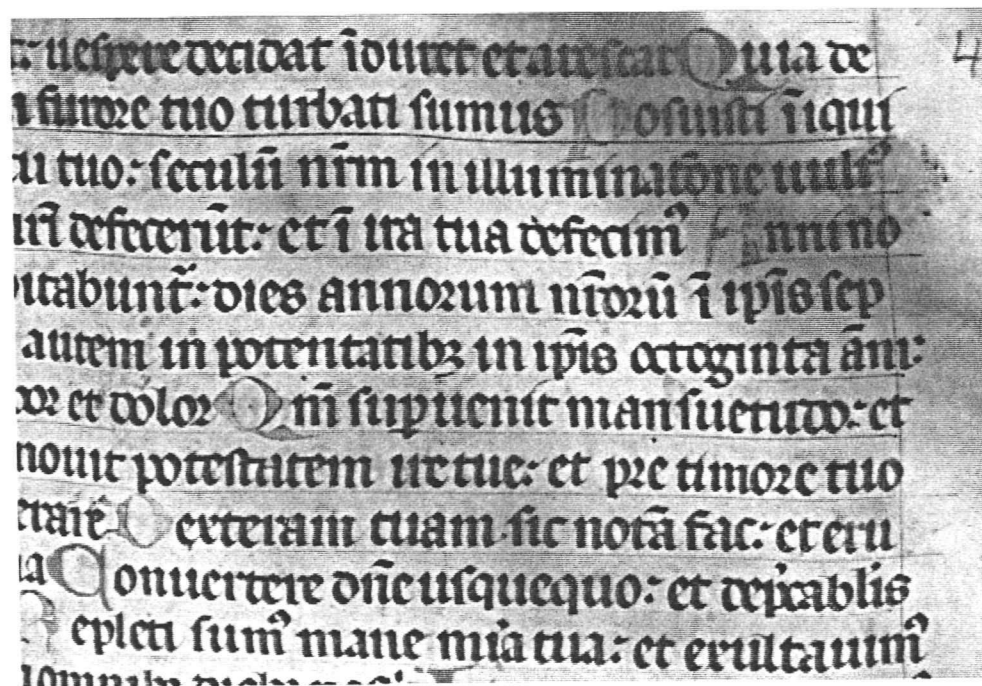 t: uespere decidat īduret et arescat Quia de
i furore tuo turbati sumus Posuisti īiqui
tu tuo: seculū nr̄m in illuminatōne uult᾽
nr̄i defecerūt: et ī ira tua defecim᾽ Anni no
bitabunt᷑: dies annorum nr̄orū ī ip̄is sep
autem in potentatibꝫ in ip̄is octoginta āni:
bor et dolor Qm̄ suꝑuenit mansuetudo: et
nouit potestatem ire tue: et pre timore tuo
erare Dexteram tuam sic notā fac: et eru
ia Conuertere dn̄e usquequo: et dep̄cablis
Repleti sum᾽ mane mīa tua: et exultauim᾽